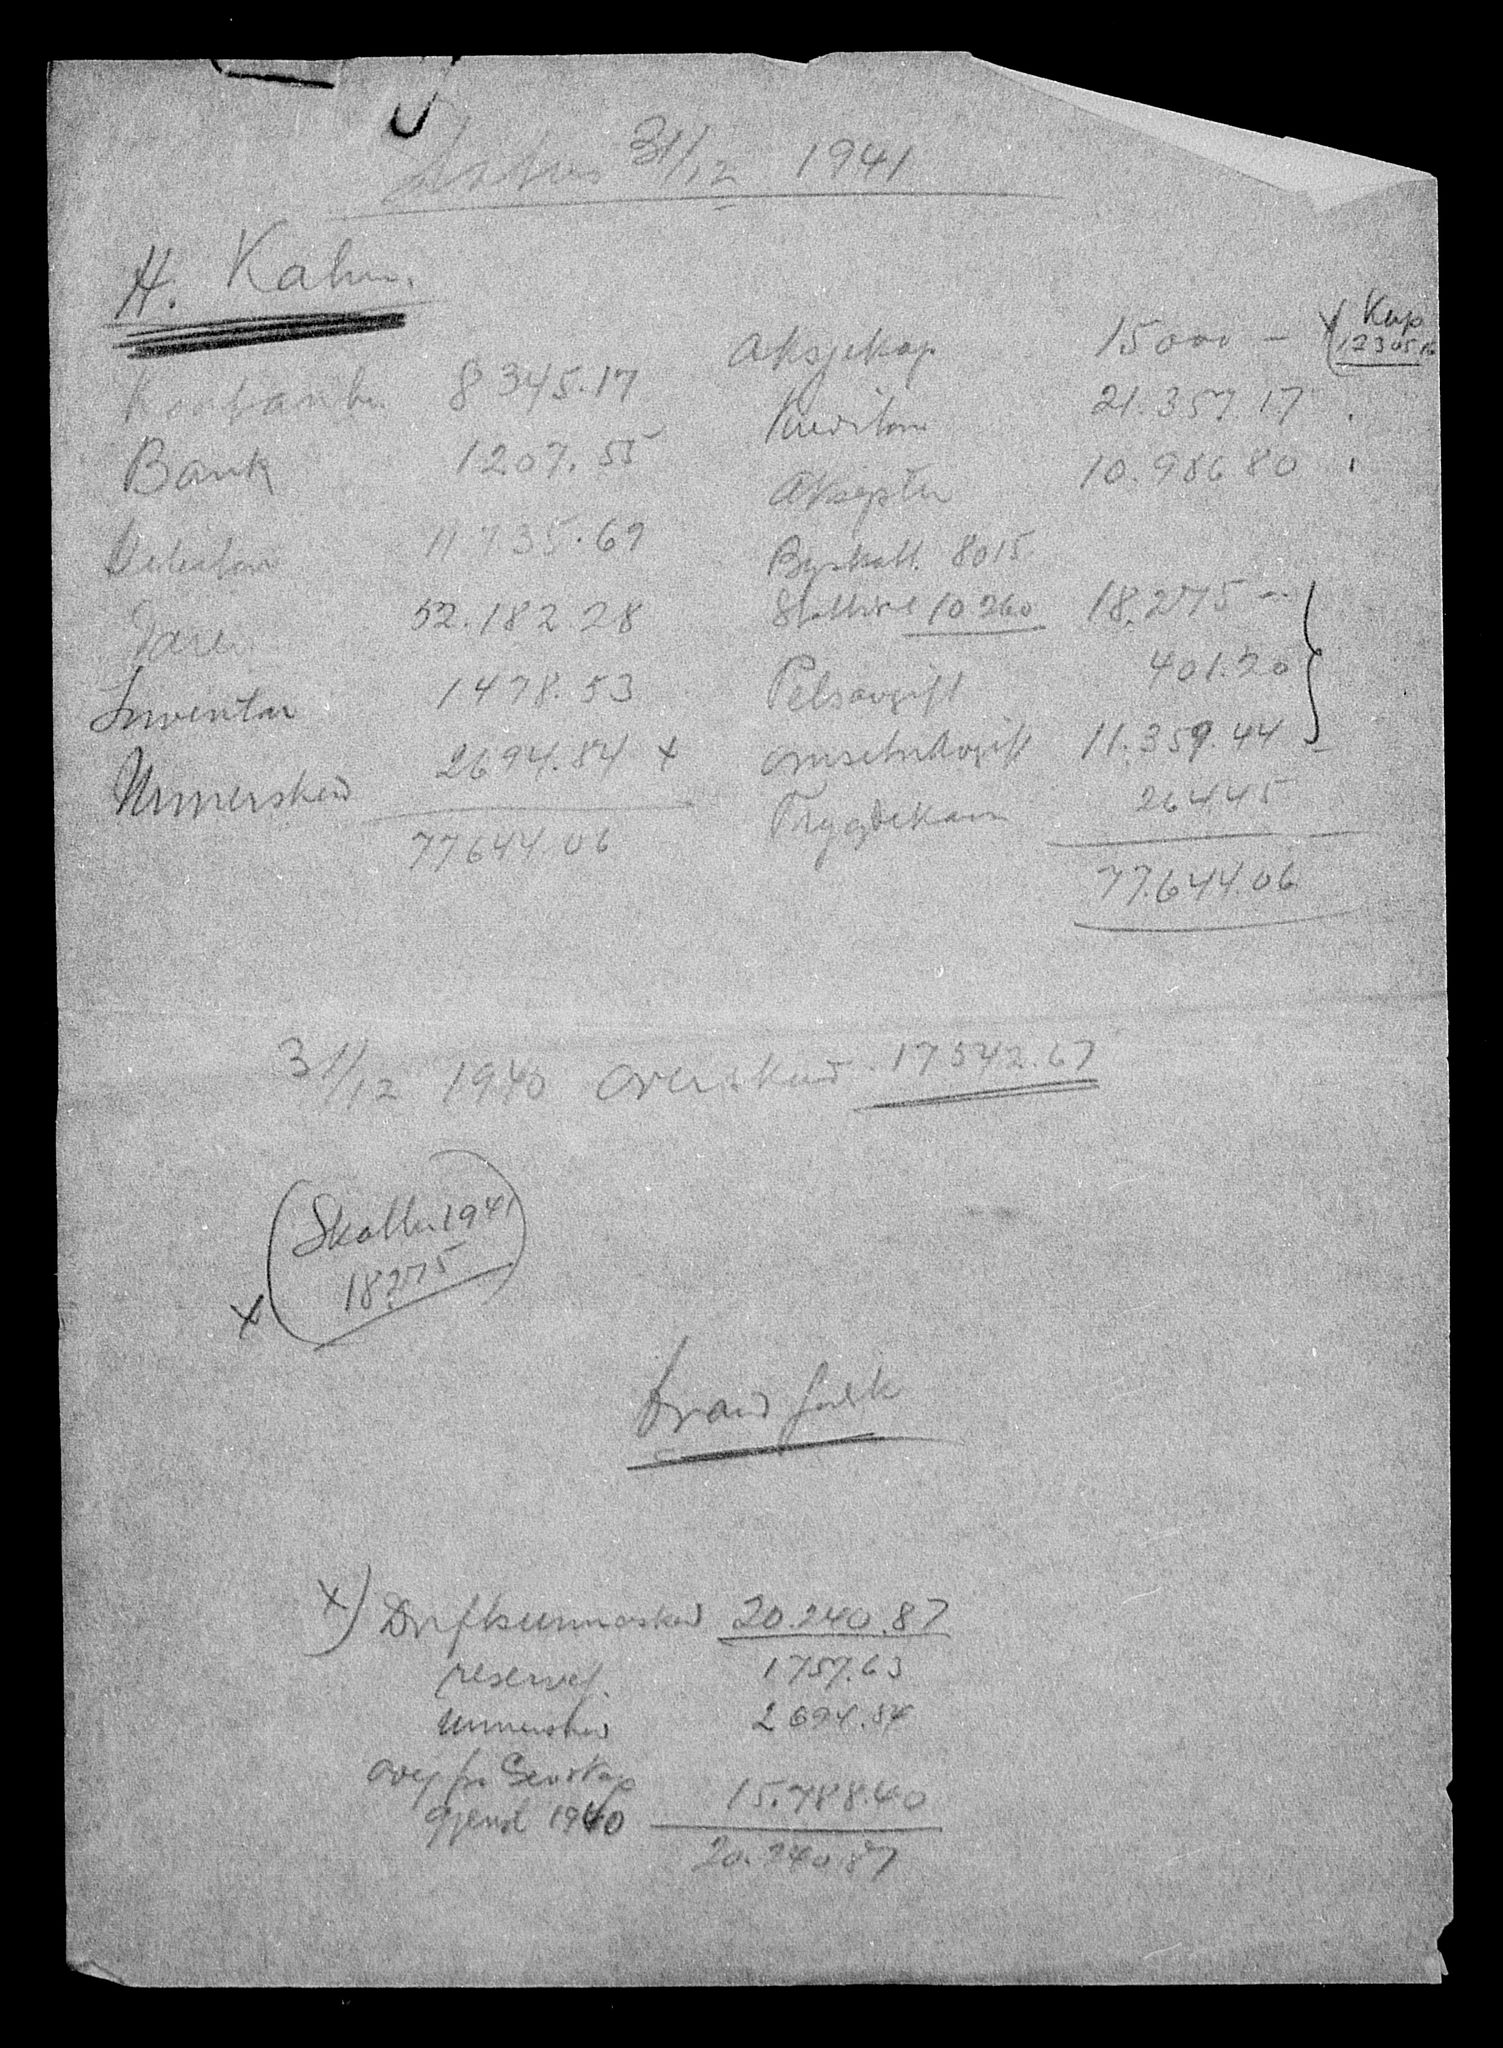 Status 31/12 1941
H. Kahn.
Kontanter 8345.17
Bank 1207.55
Debitorer 11735.69
Varer 52.182.28
Inventar 1478.53
Underskud 2694.84 x
77644.06
Aksjekap 15000 –
x Kap
12305.16
Kreditorer 21.357.17
Aksepter 10.986.80
Byskatt. 8015.
Statskat 10260 18.275 –
Pelsavgift 401.20
Omsetn.avgift 11.359.44
Trygdekam 264.45
77.644.06
31/12 1940 overskud 17542.67
x (Skatter 1941
18275)
x) Driftsunderskud 20.240.87
reservef. 1757.63
underskud 2694.84
ovf fra
gjenst 1940 15.788.40
20.240.87